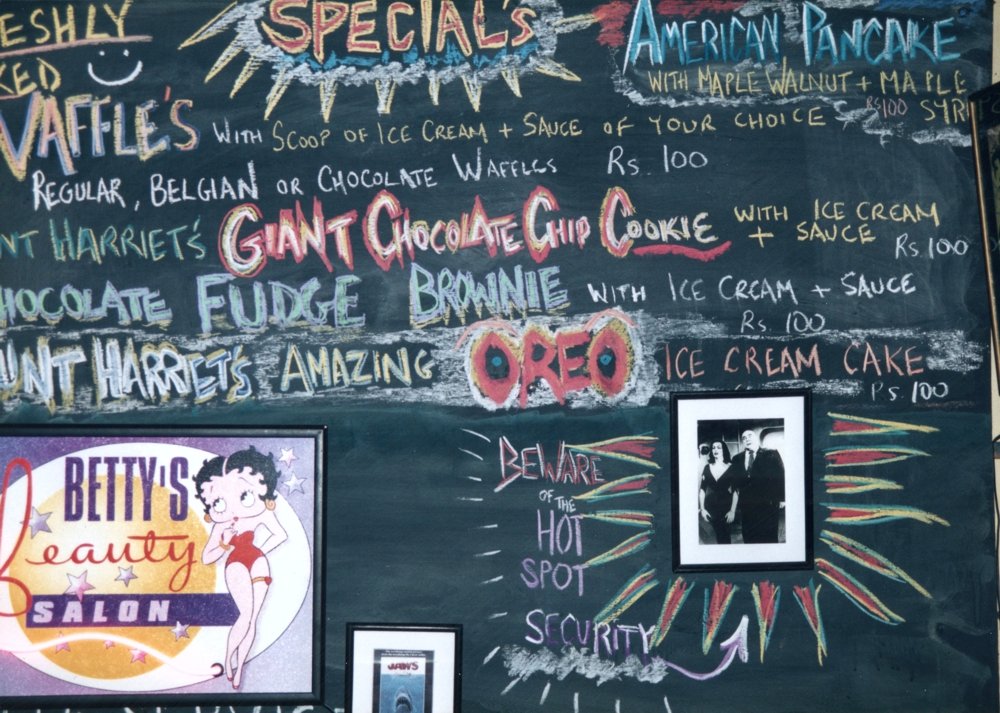 ESHLY
KED
SPECIAL'S
AMERICAN PANCAKE
WITH MAPLE WALNUT + MAPLE
RS100 SYR
WAFFLE'S WITH SCOOP OF ICE CREAM + SAUCE OF YOUR CHOICE
REGULAR, BELGIAN OR CHOCOLATE WAFFLES Rs. 100
NT HARRIET'S GIANT CHOCOLATE CHIP COOKIE WITH ICE CREAM
+ SAUCE Rs 100
HOCOLATE FUDGE BROWNIE WITH ICE CREAM + SAUCE
Rs. 100
UNT HARRIET'S AMAZING OREO ICE CREAM CAKE
Rs. 100
BETTY'S
Beauty
SALON
BEWARE
OF THE
HOT
SPOT
SECURITY
JAWS